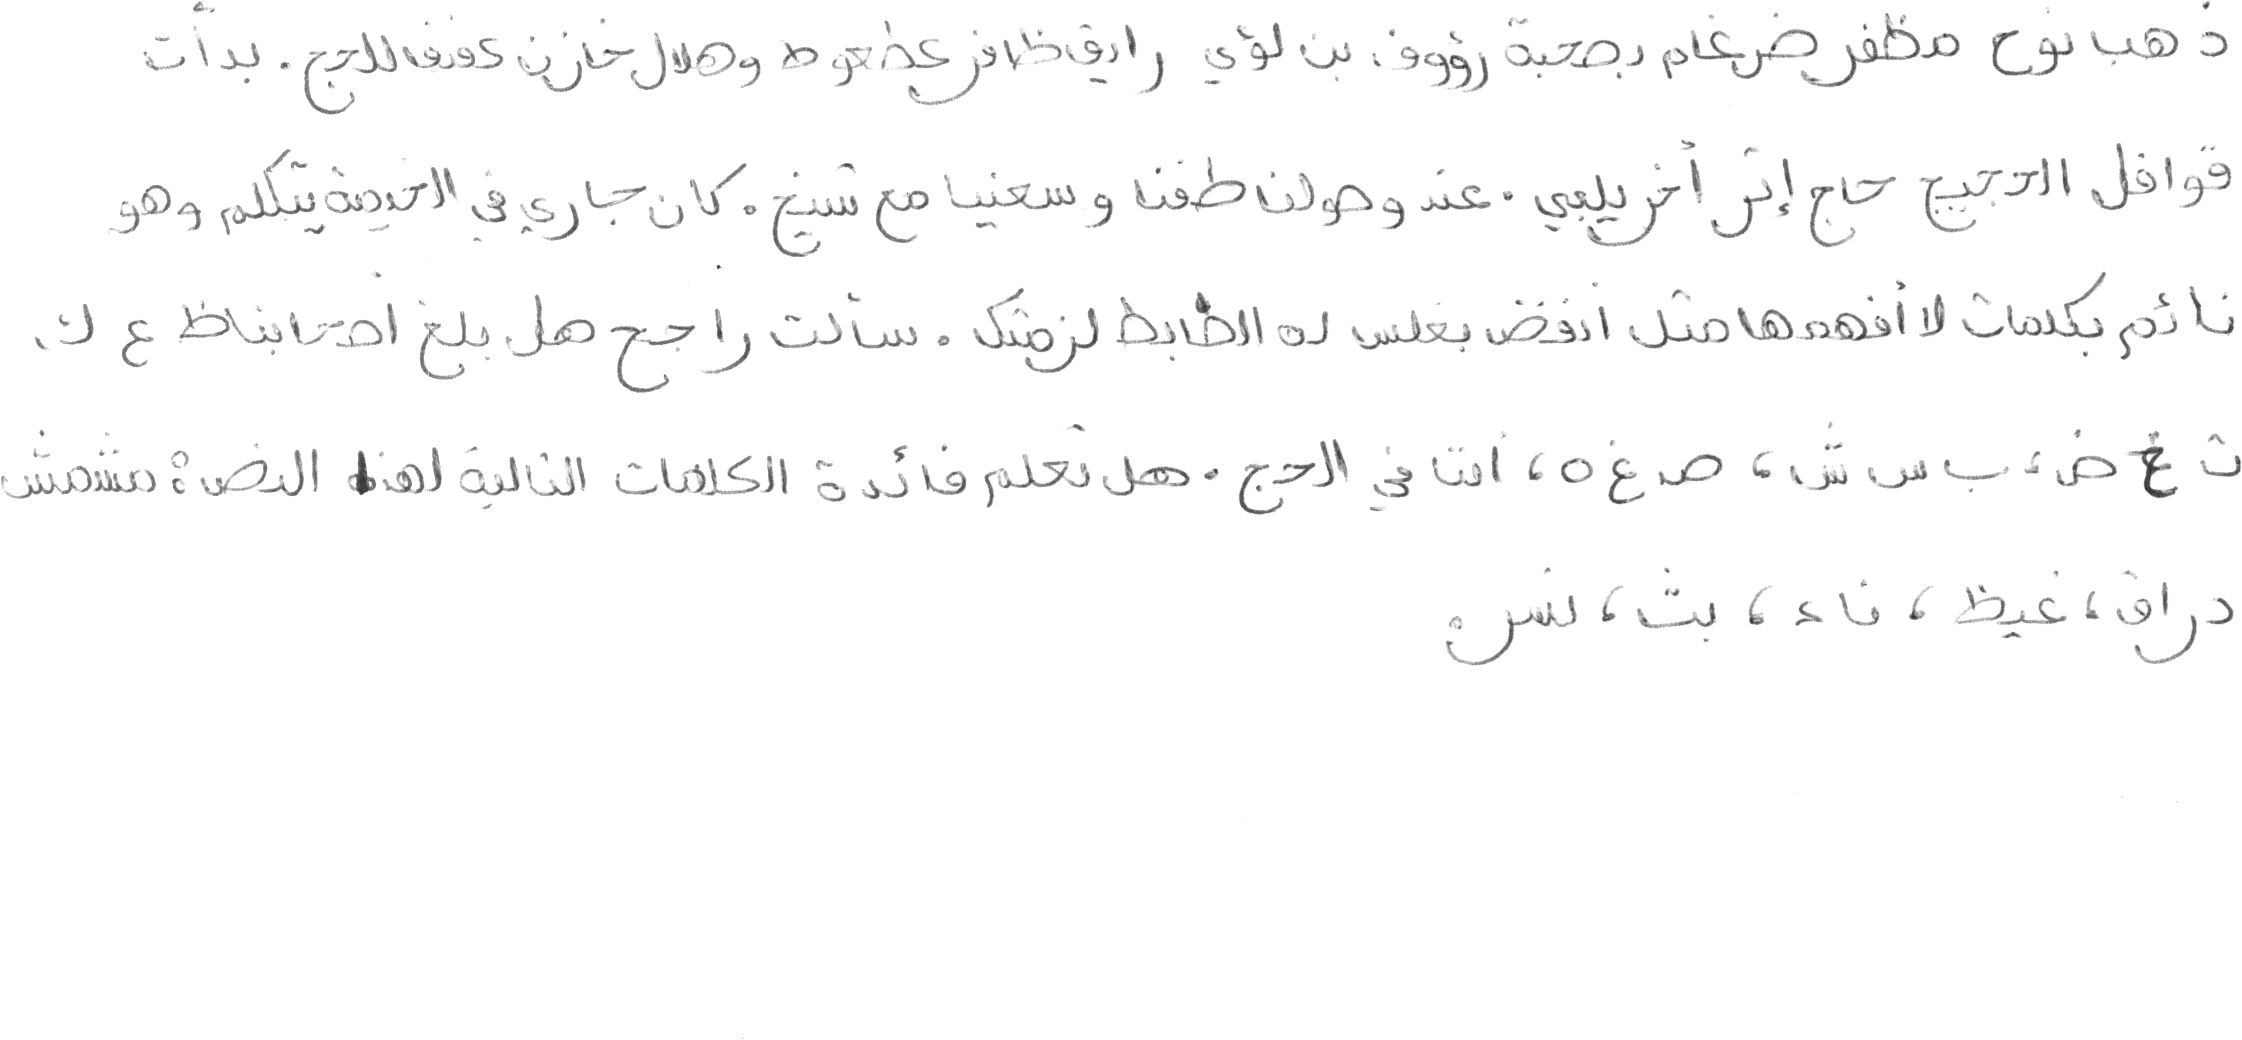 ذهب نوح مظفر ضرغام بصحبة رؤوف بن لؤي رايق ظافر عطعوط وهلال خازن كفيفا للحج. بدأت
قوافل الحجيج حاج إثر أخر يلبي. عند وصولنا طفنا وسعنيا مع شيخ. كان جاري في الخيمة يتكلم وهو
نائم بكلمات لا أفهمها مثل أنفض بغلس له الظابط لزمتك. سألت راجح هل بلغ أصحابنا ظ ع ك،
ث غ ض، ب س ش، ص غ ه، انتا في الحج. هل تعلم فائدة الكلمات التالية لهذا النص؟ مشمش
دراق، غيظ، ناء، بث، نشر.